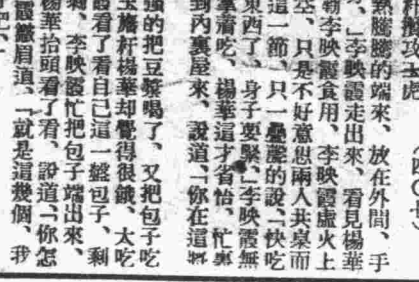 熱騰騰的端來、放在外間、手
、」李映霞走出來、看見楊華
李映霞食用、李映霞虛火上
空、只是不好意思兩人共桌而
這一節、只一疊聲的說、「快吃
東西了、身子要緊、」李映霞無
拿着吃、楊華這才省悟、忙
到內裏屋來、說道、「你在這
強的把豆漿喝了、又把包子吃
玉旛杆楊華却覺得很餓、太吃
霞看了看自己這一盤包子、剩
、李映霞忙把包子端出來、
楊華抬頭看了看、說道、「你怎
霞皺眉道、「就是這幾個、我